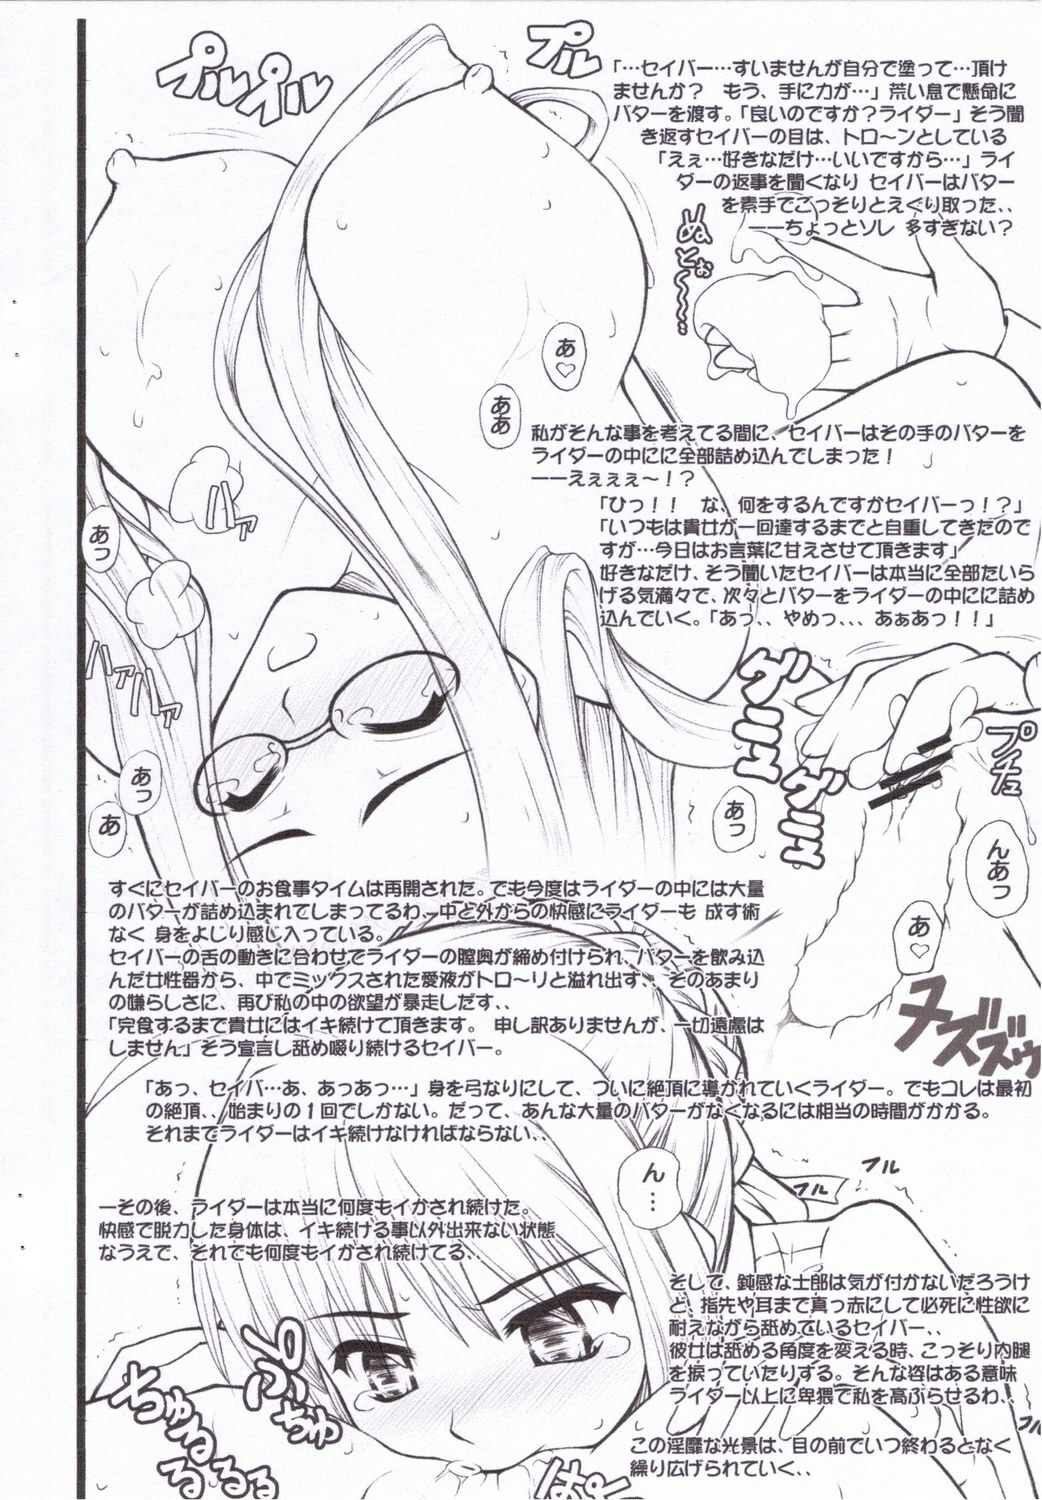 プルプルプル
プル
「…セイバー…すいませんが自分で塗って…頂け
ませんか？　もう、手に力が…」荒い息で懸命に
バターを渡す。「良いのですか？ライダー」そう聞
き返すセイバーの目は、トロ〜ンとしている
「えぇ…好きなだけ…いいですから…」ライ
ダーの返事を聞くなり セイバーはバター
を素手でごっそりとえぐり取った、、
――ちょっとソレ 多すぎない？
ぬとぉ〜〜…
あ♡
ああ
私がそんな事を考えてる間に、セイバーはその手のバターを
ライダーの中にに全部詰め込んでしまった！
――えぇぇぇ〜！？
「ひっ！！　な、何をするんですかセイバーっ！？」
「いつもは貴女が一回達するまでと自重してきたので
すが…今日はお言葉に甘えさせて頂きます」
好きなだけ、そう聞いたセイバーは本当に全部たいら
げる気満々で、次々とバターをライダーの中にに詰め
込んでいく。「あっ、、やめっ、、、あぁあっ！！」
ハァ
あっ
ハァハァ
あっ
あ
ゲニュ
ゲニュ
あっ
んあっ
あ♡
ヌズズゥ
すぐにセイバーのお食事タイムは再開された。でも今度はライダーの中には大量
のバターが詰め込まれてしまってるわ、中と外からの快感にライダーも 成す術
なく 身をよじり感じ入っている。
セイバーの舌の動きに合わせてライダーの膣奥が締め付けられ、バターを飲み込
んだ女性器から、中でミックスされた愛液がトロ〜リと溢れ出す、、そのあまり
の嫌らしさに、再び私の中の欲望が暴走しだす、、
「完食するまで貴女にはイキ続けて頂きます。 申し訳ありませんが、一切遠慮は
しません」そう宣言し舐め啜り続けるセイバー。
「あっ、セイバ…あ、あっあっ…」身を弓なりにして、ついに絶頂に導かれていくライダー。でもコレは最初
の絶頂、、始まりの１回でしかない。だって、あんな大量のバターがなくなるには相当の時間がかかる。
それまでライダーはイキ続けなければならない、、
ん…
フル
フル
―その後、ライダーは本当に何度もイかされ続けた。
快感で脱力した身体は、イキ続ける事以外出来ない状態
なうえで、それでも何度もイかされ続けてる、、
そして、鈍感な士郎は気が付かないだろうけ
ど、指先や耳まで真っ赤にして必死に性欲に
耐えながら舐めているセイバー、、
彼女は舐める角度を変える時、こっそり内腿
を捩っていたりする。そんな姿はある意味
ライダー以上に卑猥で私を高ぶらせるわ、、
フル
ちゅるるるる
この淫靡な光景は、目の前でいつ終わるとなく
繰り広げられていく、、